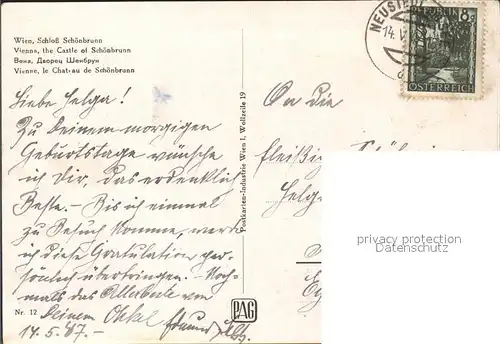 Wien, Schloß Schönbrunn
Vienna, the Castle of Schönbrunn
Вена, Дворец Шенбрун
Vienne, le Chateau de Schönbrunn
Liebe Helga!
Zu Deinem morgigen
Geburtstage wünsche
ich Dir, das erdenklich
Beste. – Bis ich einmal
zu Besuch komme, werde
ich diese Gratulation per-
sönlich übertringen. – Noch-
mals das Allerbeste von
Deinem Onkel
14.5.47. –
Nr. 12
PAG
Postkarten-Industrie Wien I, Wollzeile 19
An die
fleißige
Helga
NEUSIEDL
14. V.
REPUBLIK 8
ÖSTERREICH
privacy protection
Datenschutz